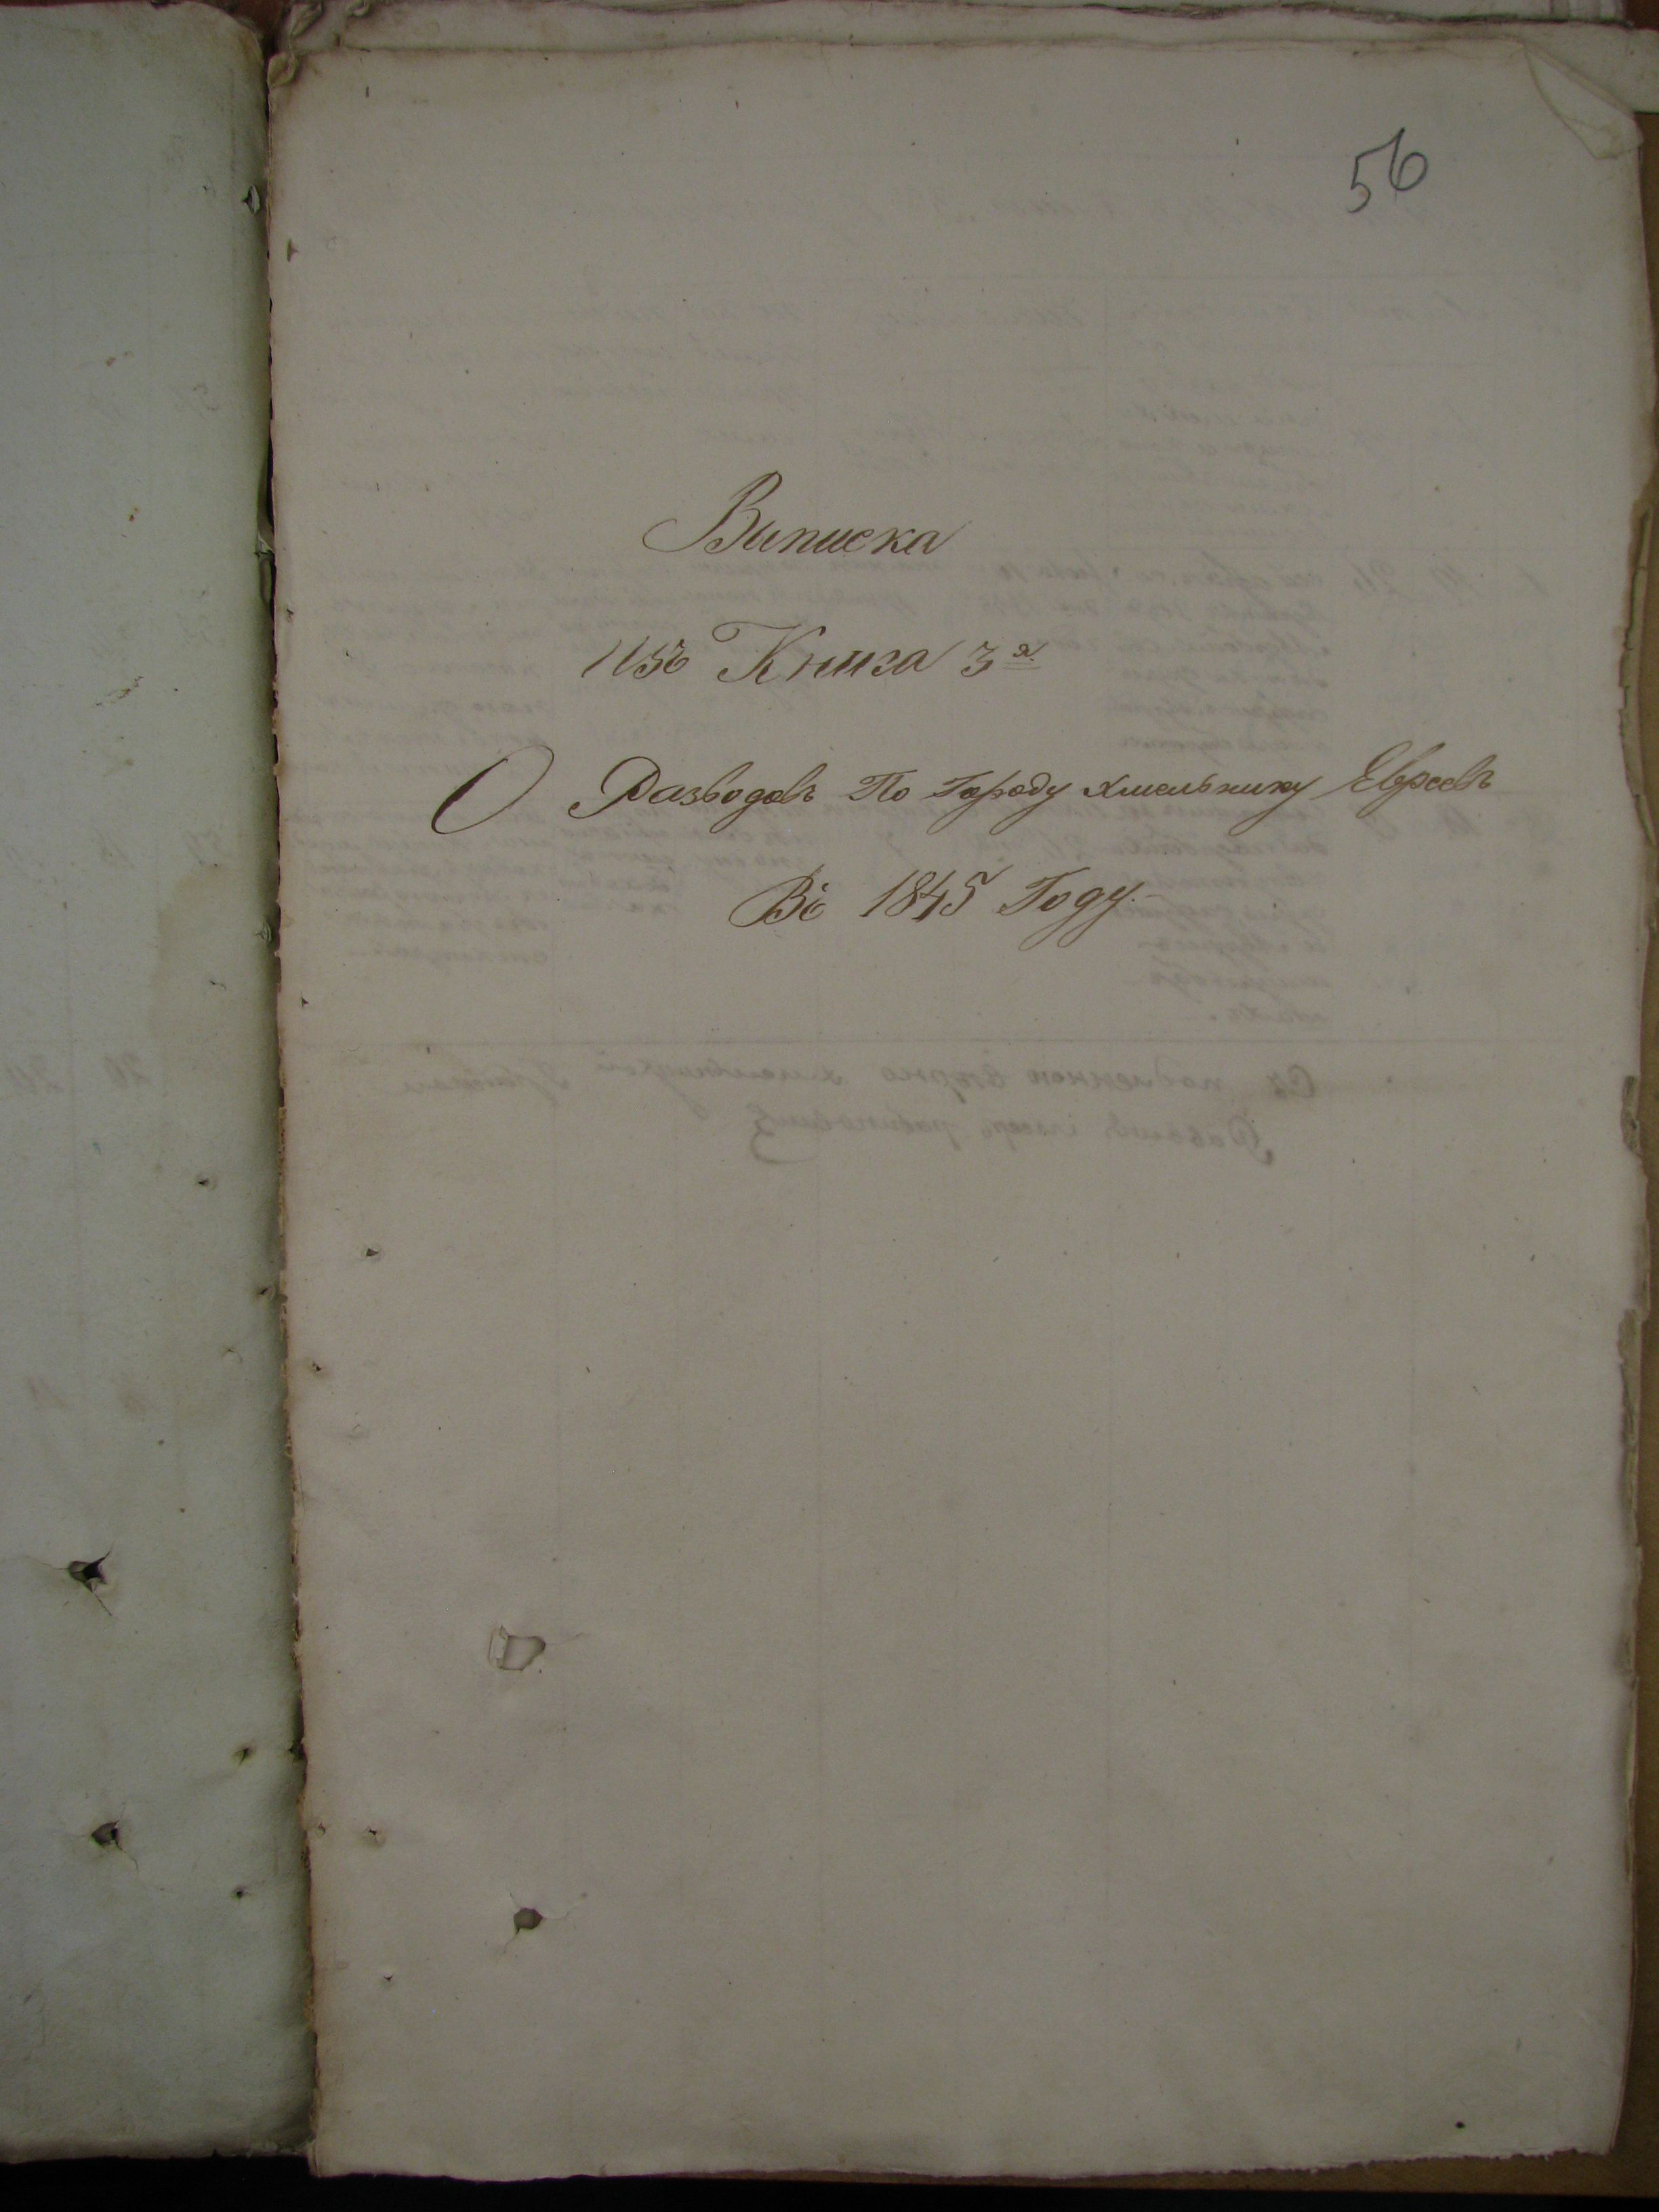 56
Выписка
Изъ Книга 3я
О Разводовъ По Городу хмельнику Евреевъ
Въ 1845 Году.